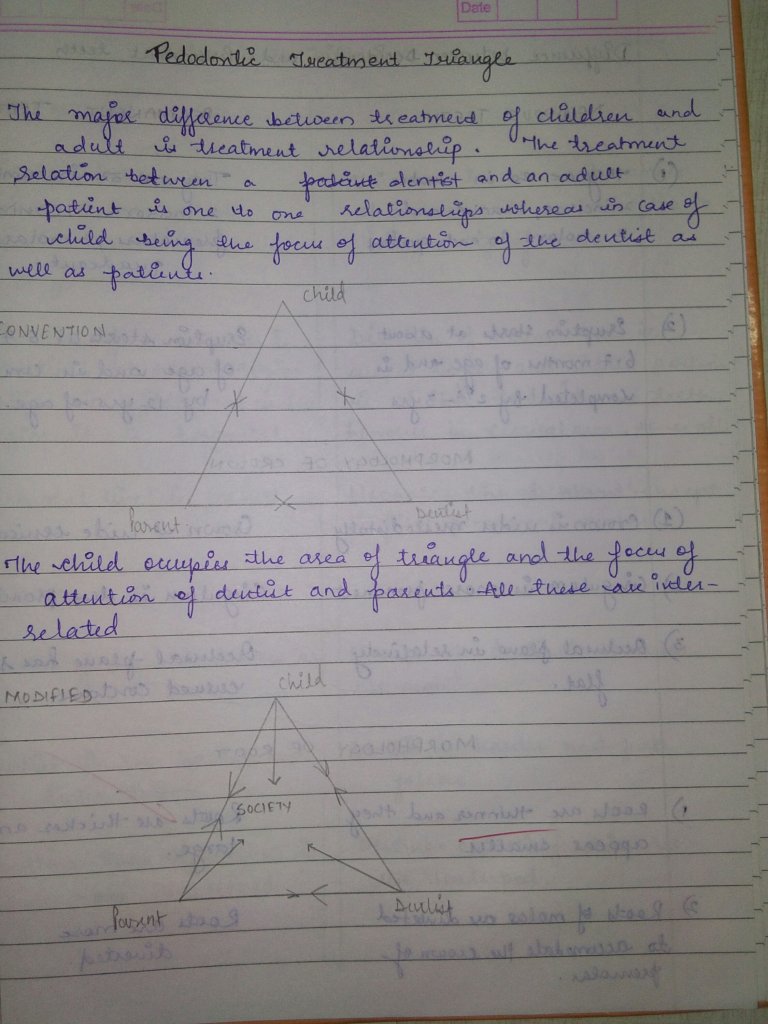 Date
Pedodontic Treatment Triangle
The major difference between treatment of children and
adult is treatment relationship. The treatment
relation between a patient dentist and an adult
patient is one to one relationships whereas in case of
child being the focus of attention of the dentist as
well as patients.
Child
CONVENTION
Parent
Dentist
The child occupies the area of triangle and the focus of
attention of dentist and parents. All these are inter-
related
MODIFIED
Child
SOCIETY
Parent
Dentist